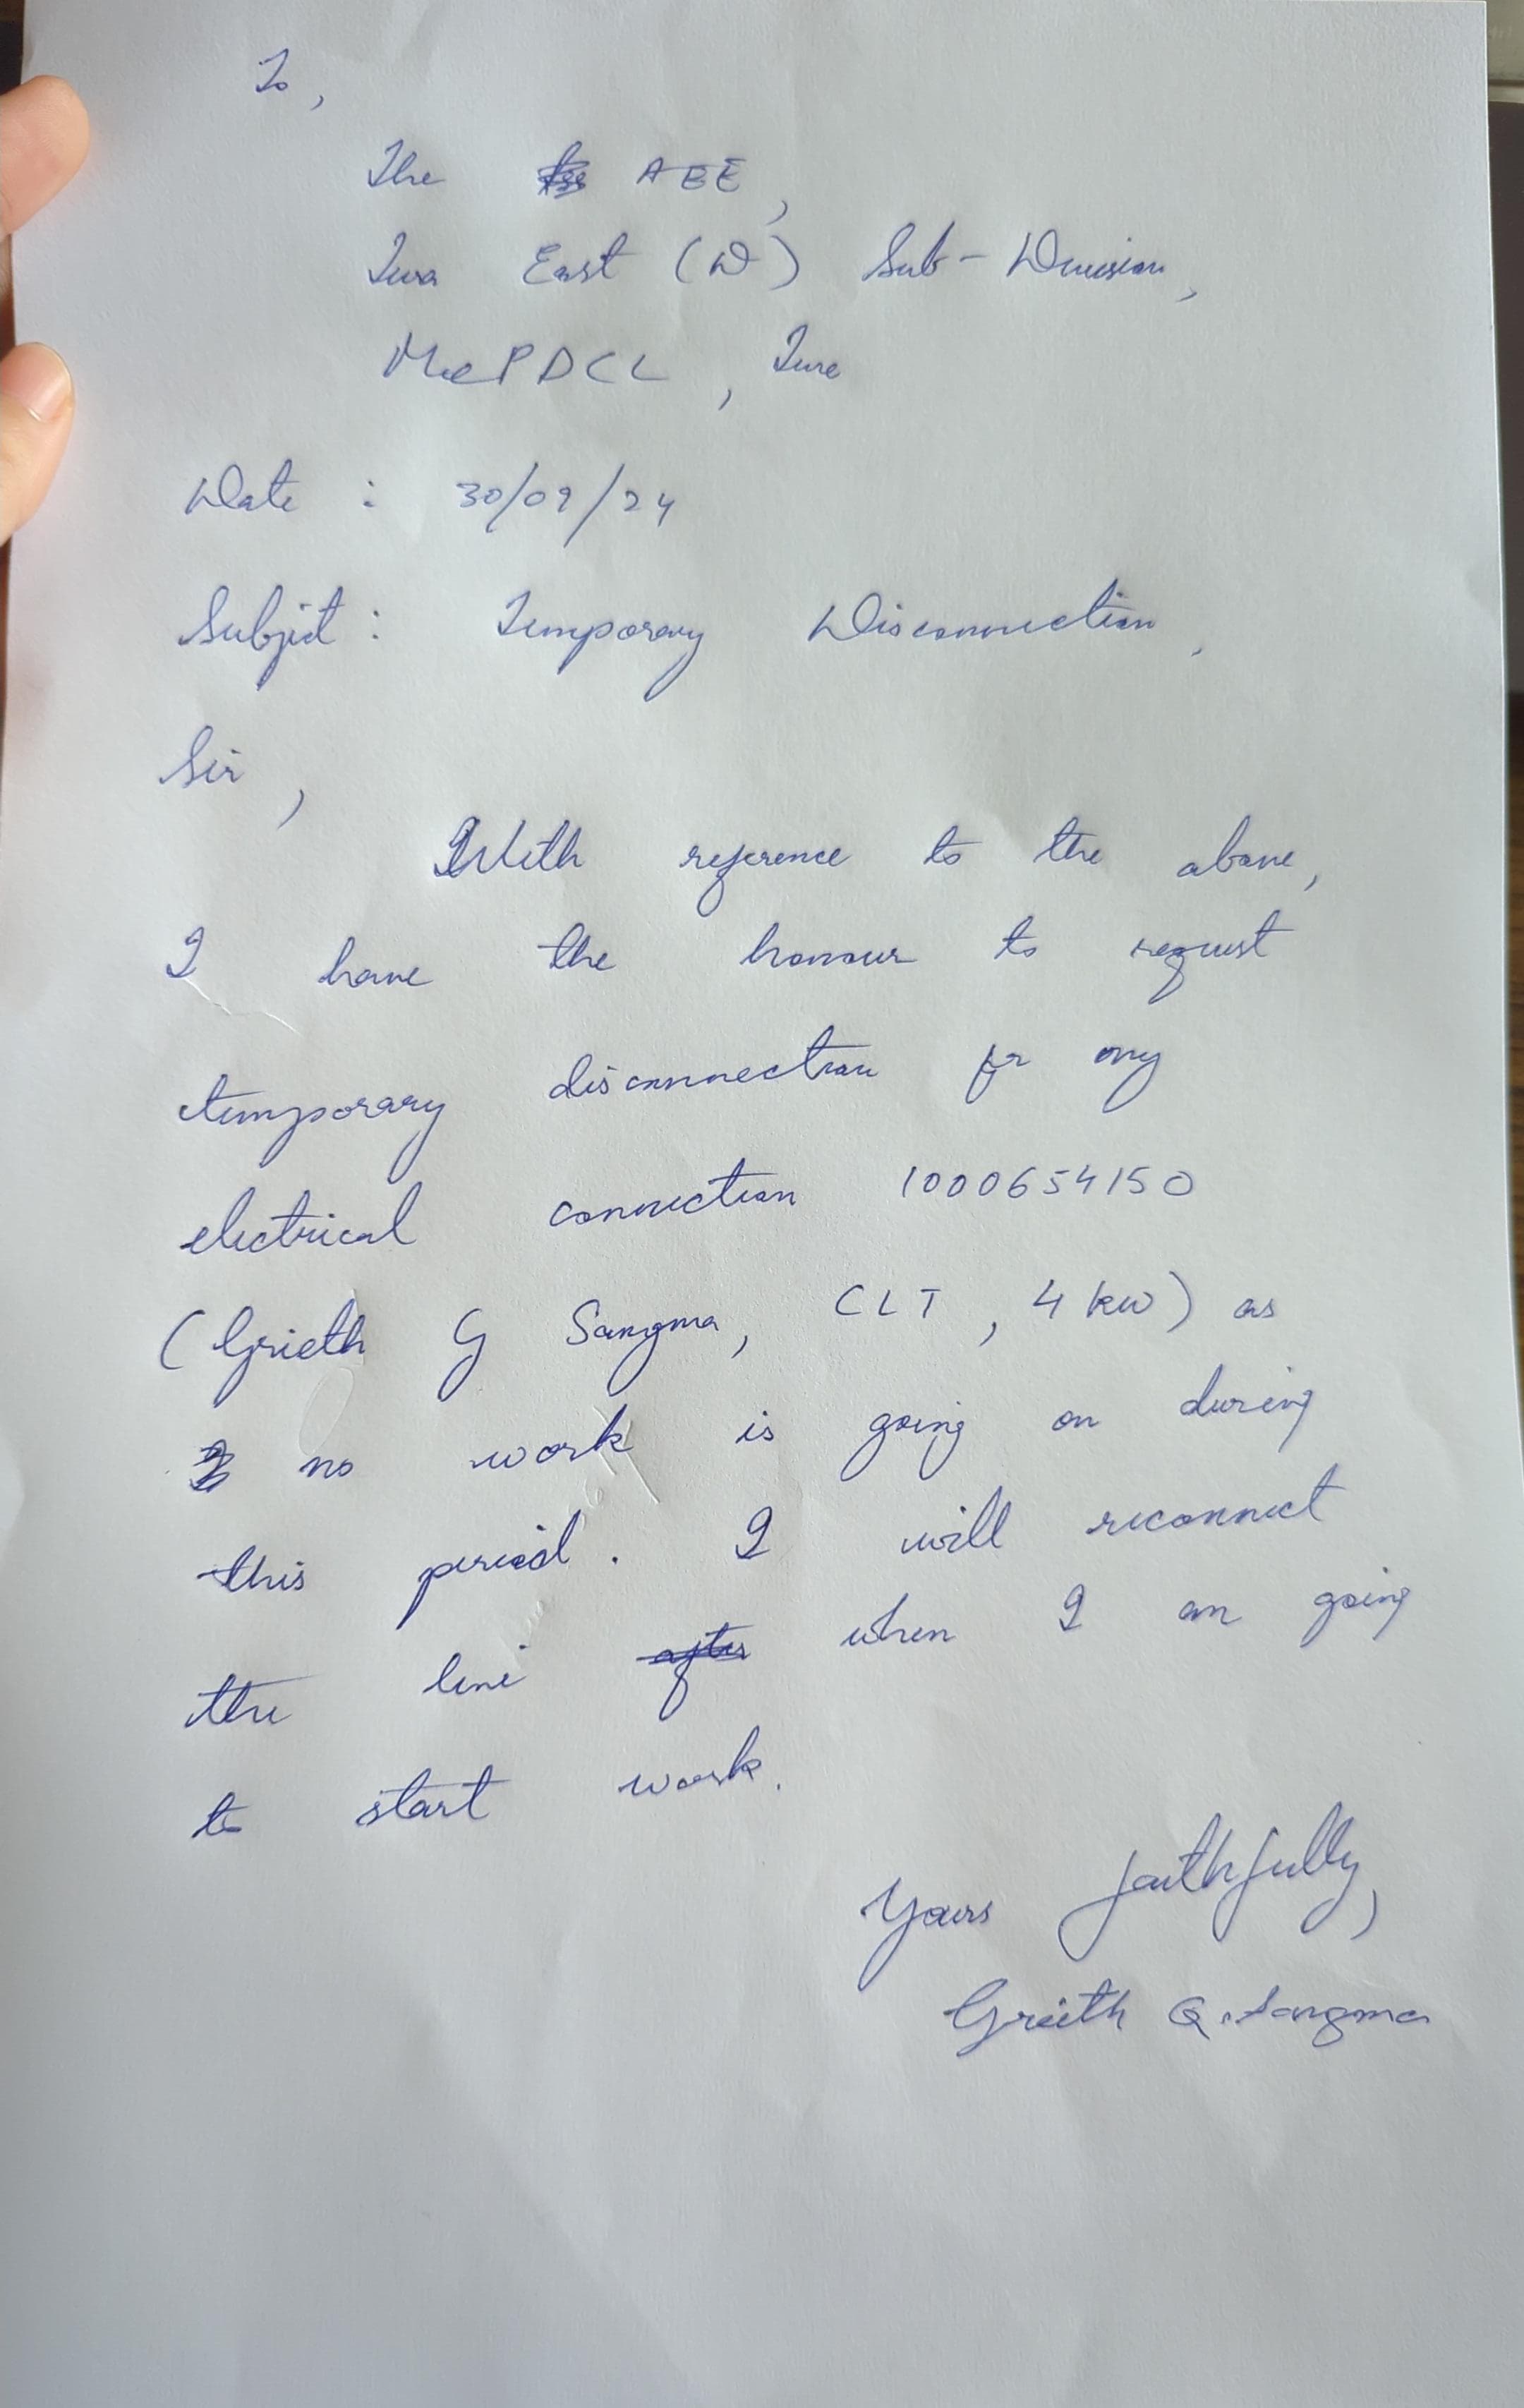 To,
The AEE,
Tura East (D) Sub-Division,
MePDCL, Tura
Date : 30/09/24
Subject : Temporary Disconnection,
Sir,
With reference to the above,
I have the honour to request
temporary disconnection for my
electrical connection 1000654150
(Grieth G Sangma, CLT, 4 kW) as
no work is going on during
this period. I will reconnect
the line after when I am going
to start work.
Yours faithfully,
Grieth G. Sangma